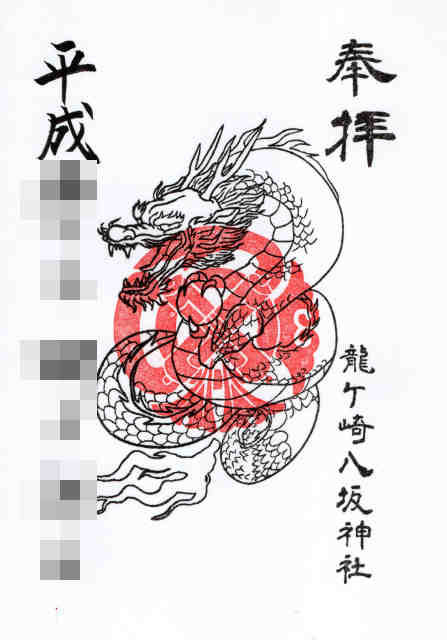 奉拝
龍ケ崎八坂神社
平成